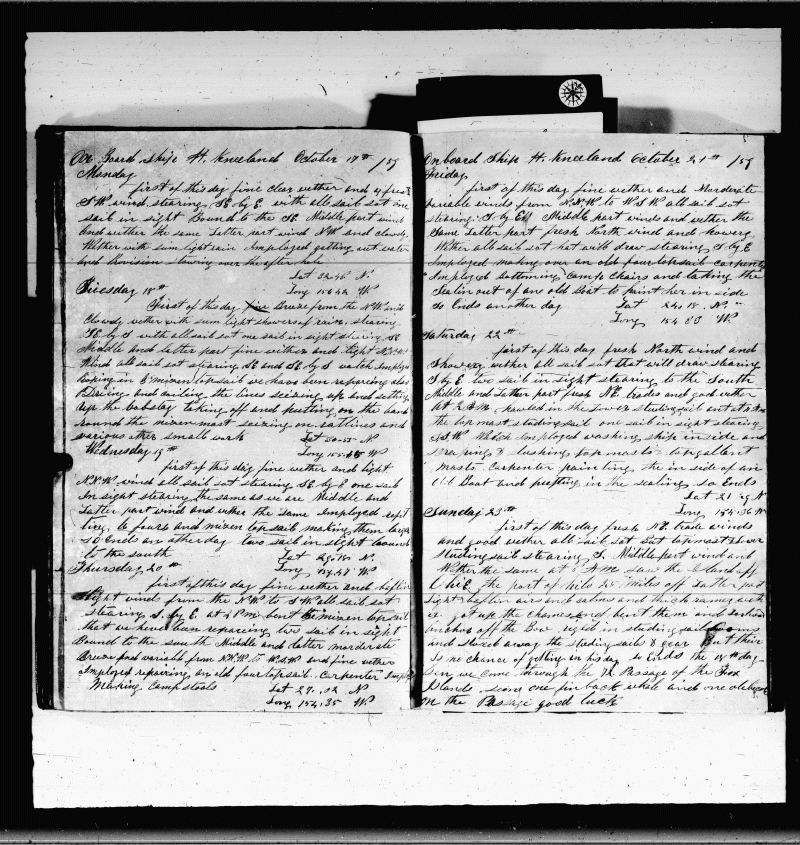 On Board Ship H. Kneeland October 17th /59
Monday
first of this day fine clear wether and a fresh
S.W wind stearing SE by E with all sail sot one
sail in sight Bound to the SE Middle part wind
and wether the same Latter part wind N.W and cloudy
Wether with sum light rain Imployed getting out water
and Provision stowing over the after hole
Lat 32.46 N.
Tuesday 18th Long 156.42 W
First of this day fine Breeze from the N.W. and
Clowdy wether with sum light showers of rain. stearing
SE by S with all sail sot one sail in sight stearing SE
Middle and latter part fine wether and light N.N.W
Wind all sail sot stearing SE and SE by S watch Imployd
in mizen top sail we have been repairing also
and the lines seizing up and setting
up the bobstay taking off and putting on the band
round the mizen mast seizing on ratlines and
various other small work Lat 30.55 N
Wednesday 19th Long 155.45 W
first of this day fine wether and light
N.N.W. wind all sail sot stearing SE by E one sail
In sight stearing the same as we are Middle and
Latter part wind and wether the same Imployed
ting to fourb and mizen top sail making them larger
So Ends an other day two sail in sight bound
to the south Lat 29.18 N.
Thursday 20th Long 154.47 W
first of this day fine wether and bafling
Light winds from the N.W. to S.W all sail sot
stearing S. by E. at 4 PM bent the mizen top sail
that we have been repairing two sail in sight
Bound to the south Middle and latter morderate
Breeze and variable from N.N.W to W.S.W and fine wether
Imployed repairing an old four top sail. Carpenter Imployd
Making Camp stools Lat 27.12 N
Long 154.35 W
Onboard Ship H. Kneeland October 21st /59
Friday
first of this day fine wether and Morderate
Variable winds from N.N.W to W.S.W all sail sot
stearing S by E½ Middle part winds and wether the
Same Latter part fresh North wind and howery
Wether all sail sot that will draw stearing S by E
Imployed making over an old four top sail carpenter
Imployed Bottoming Camp Chairs and taking the
Sealin out of an old Boat to paint her in side
So Ends another day Lat 24.18 N.
Long 154.23 W
Saturday 22nd
first of this day fresh North wind and
Showery wether all sail sot that will draw stearing
S by E two sail in sight stearing to the South
Middle and Latter part fresh N.E. trades and good wether
At 2 A.M. hawled in the lower studing sail out at 5 AM
the top mast studing sail one sail in sight stearing
S.S.W Watch Imployed washing ship inside and
& slushing top masts & topgallant
masts Carpenter painting the in side of an
Old Boat and putting in the sealing So Ends
Lat 21.29 N
Sunday 23rd Long 154.36 W
first of this day fresh N.E. trade winds
and good wether all sail sot but top mast & lower
studing sail stearing S. Middle part wind and
Wether the same at AM saw the Island off
the port of hilo 25 miles off Latter part
Light bafling airs and calms and thick rainey weth
er got up the chains and bent them and lashed
anchor off the Bow in studing sail booms
and stowed away the studing sails & gear But thier
Is no chance of getting in his day So Ends the 18th day
Sin we come through the 72 Passage of the Fox
Islands seen one fin back whale and one
On the Passage good luck